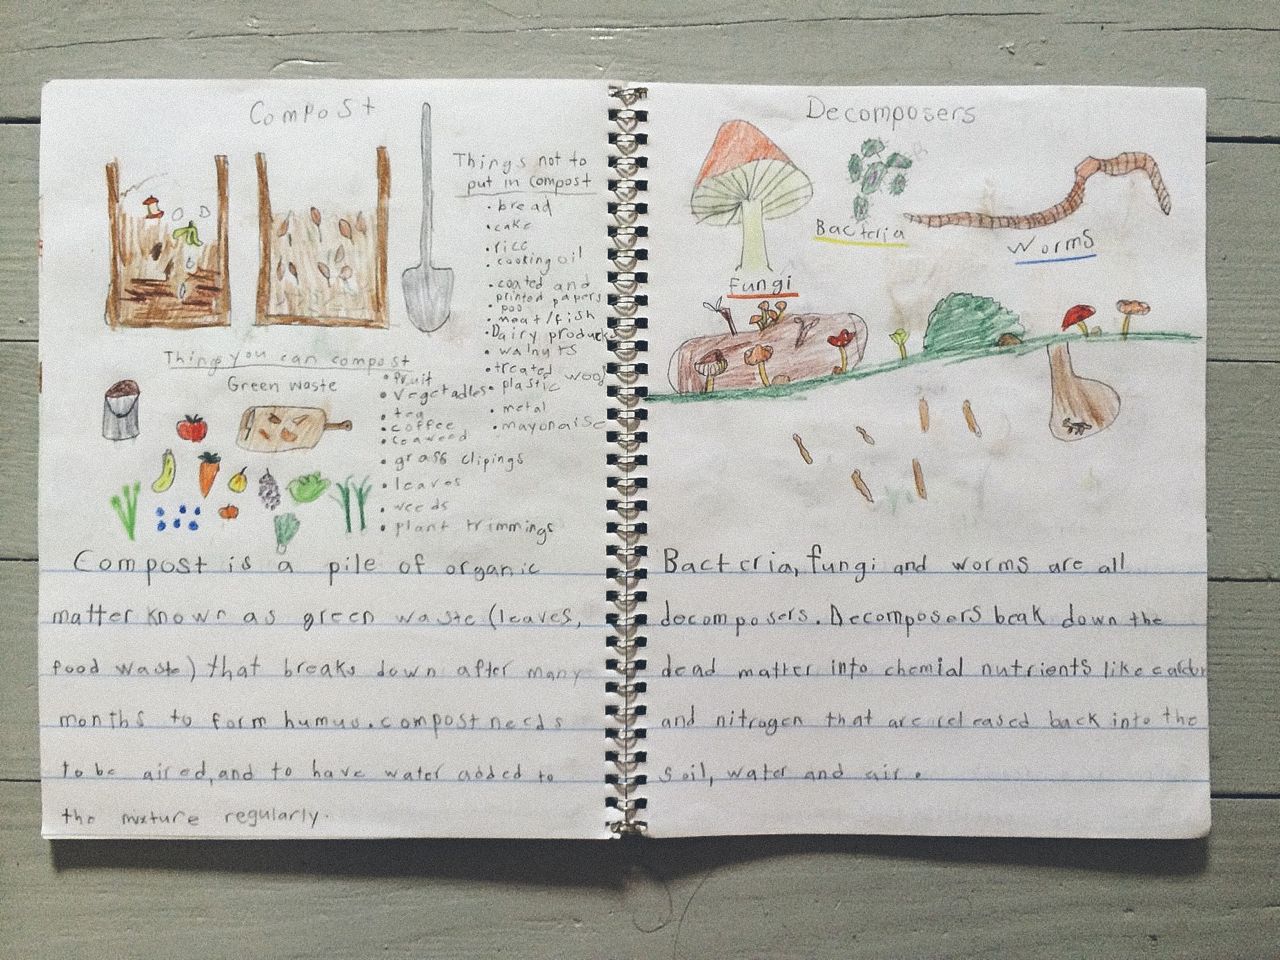 Compost
Things not to
put in compost
• bread
• cake
• rice
• cooking oil
• coated and
printed papers
• poo
• meat/fish
• Dairy products
• walnuts
• treated wood
• plastic
• metal
• mayonaise
Things you can compost
Green waste
• fruit
• vegetables
• tea
• coffee
• seaweed
• grass clipings
• leaves
• weeds
• plant trimmings
Compost is a pile of organic
matter known as green waste (leaves,
food waste) that breaks down after many
months to form humus. compost needs
to be aired, and to have water added to
the mixture regularly.
Decomposers
Bacteria
Worms
Fungi
Bacteria, fungi and worms are all
decomposers. Decomposers beak down the
dead matter into chemial nutrients like
and nitrogen that are released back into the
soil, water and air.